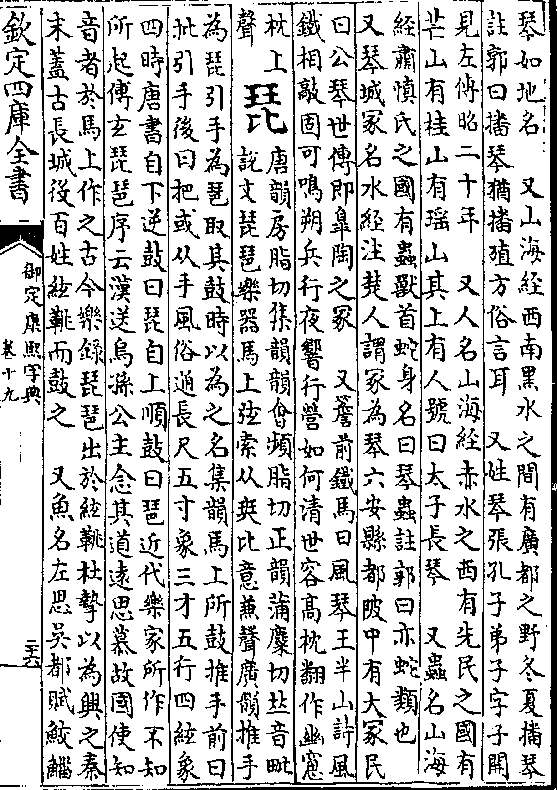 琴如地名　又山海經西南黑水之間有廣都之野冬夏播琴
註郭曰播琴猶播殖方俗言耳　又姓琴張孔子弟子字子開
見左傳昭二十年　又人名山海經赤水之西有先民之國有
芒山有桂山有瑶山其上有人號曰太子長琴　又蟲名山海
經肅慎氏之國有蟲獸首蛇身名曰琴蟲註郭曰亦蛇類也
又琴城冢名水經注楚人謂冢為琴六安縣都陂中有大冢民
曰公琴世傳即臯陶之冢　又簷前鐵馬曰風琴王半山詩風
鐵相敲固可鳴朔兵行夜響行營如何清世容髙枕翻作幽窻
枕上　琵　唐韻房脂切集韻韻會頻脂切正韻蒲麋切𠀤音毗
聲　說文琵琶樂器馬上弦索从珡比意兼聲廣韻推手
為琵引手為琶取其鼓時以為之名集韻馬上所鼓推手前曰
批引手後曰把或从手風俗通長尺五寸象三才五行四絃象
四時唐書自下逆鼓曰琵自上順鼓曰琶近代樂家所作不知
所起傅玄琵琶序云漢送烏孫公主念其道逺思慕故國使知
音者於馬上作之古今樂錄琵琶出於絃鞉杜摯以為興之秦
末蓋古長城役百姓絃鞉而鼓之　又魚名左思吳都賦鮫鯔
欽定四庫全書
御定康熙字典
卷十九
二十六